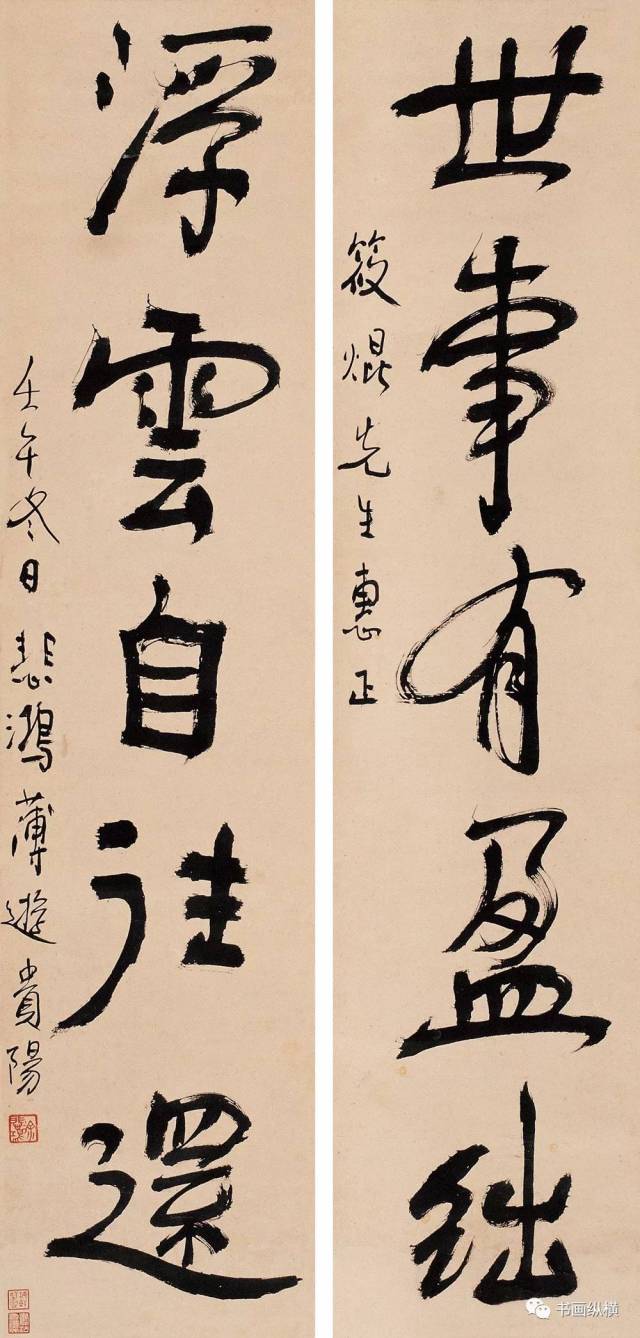 世事有盈绌
筱焜先生惠正
浮雲自往還
壬午冬日悲鴻薄遊貴陽
书画纵横